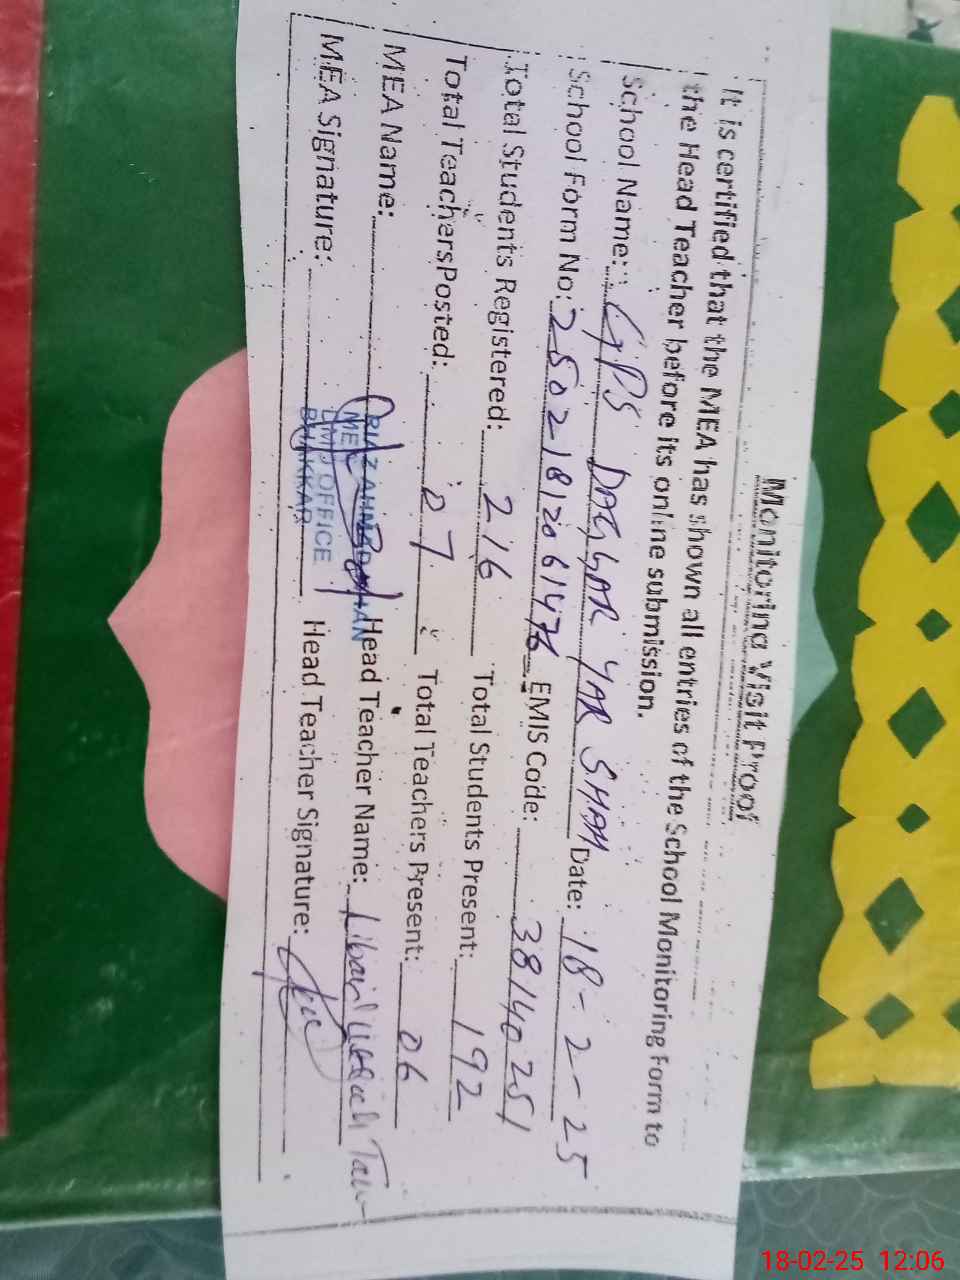 Monitoring Visit Proof
It is certified that the MEA has shown all entries of the School Monitoring Form to
the Head Teacher before its online submission.
School Name: GPS DAGGAR YAR SHAH Date: 18-2-25
School Form No: EMIS Code: 38140251
Total Students Registered: 216 Total Students Present: 192
Total Teachers Posted: 07 Total Teachers Present: 06
MEA Name: RIAZ AHMAD KHAN Head Teacher Name:
MEA
DMO OFFICE
BHAKKAR
MEA Signature: Head Teacher Signature:
18-02-25 12:06